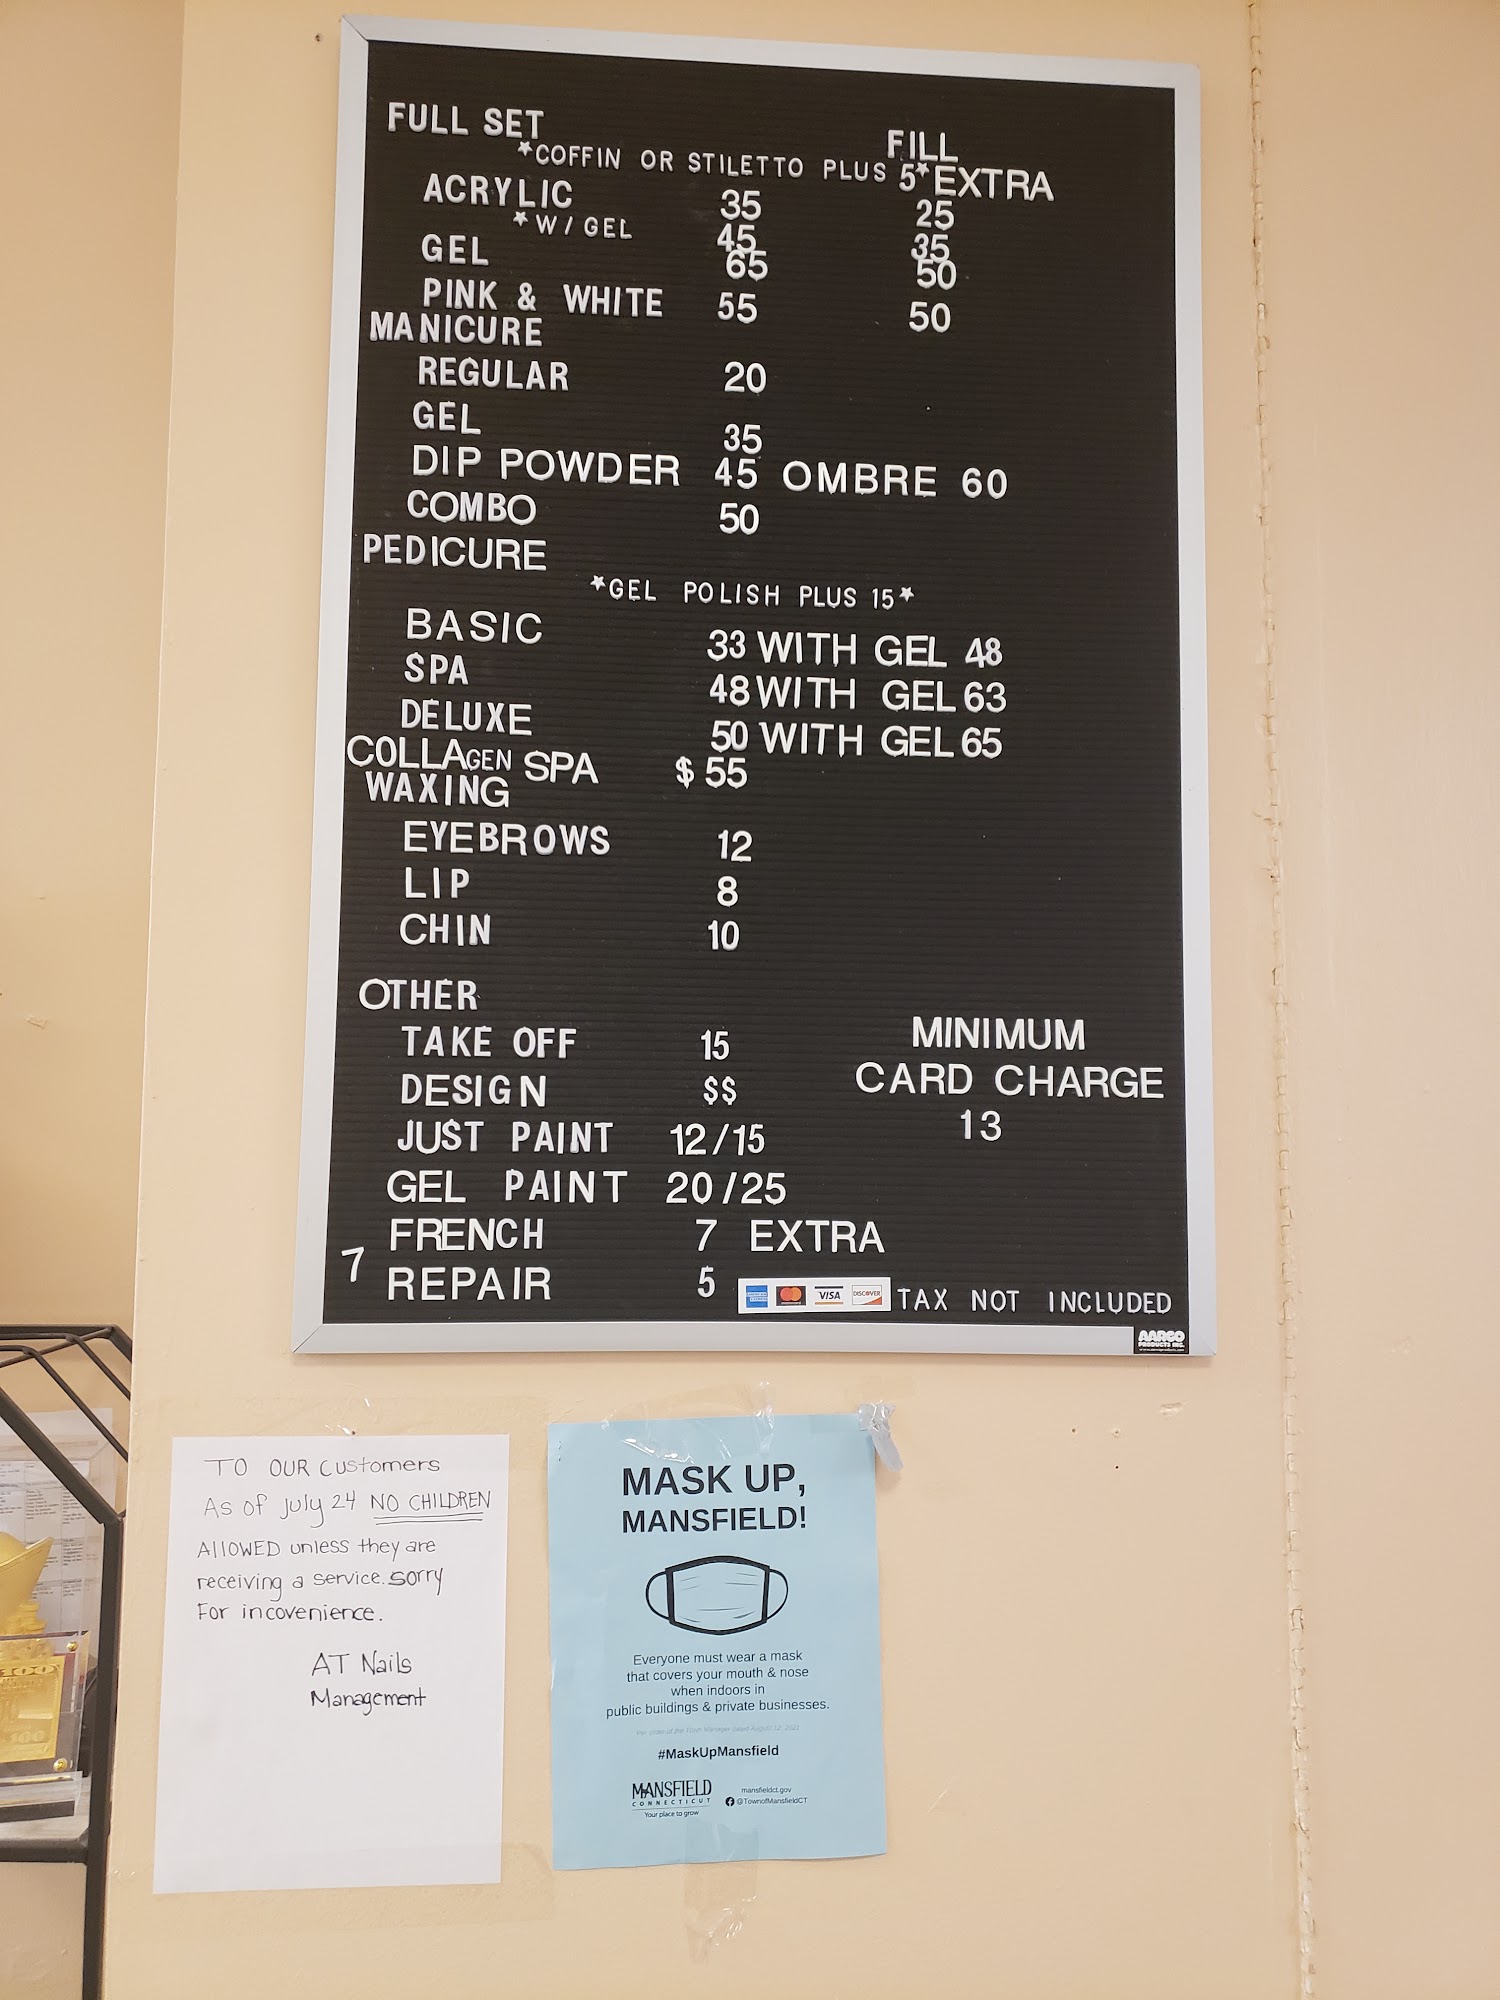 FULL SET FILL
*COFFIN OR STILETTO PLUS 5* EXTRA
ACRYLIC 35 25
*W/GEL 45 35
GEL 65 50
PINK & WHITE 55 50
MANICURE
REGULAR 20
GEL 35
DIP POWDER 45 OMBRE 60
COMBO 50
PEDICURE
*GEL POLISH PLUS 15*
BASIC 33 WITH GEL 48
SPA 48 WITH GEL 63
DELUXE 50 WITH GEL 65
COLLAGEN SPA $55
WAXING
EYEBROWS 12
LIP 8
CHIN 10
OTHER
TAKE OFF 15
DESIGN $$
JUST PAINT 12/15
GEL PAINT 20/25
FRENCH 7 EXTRA
7 REPAIR 5
MINIMUM
CARD CHARGE
13
AMERICAN EXPRESS VISA DISCOVER TAX NOT INCLUDED
AARCO
PRODUCTS INC.
TO OUR CUSTOMERS
As of July 24 NO CHILDREN
AllOWED unless they are
receiving a service. sorry
For incovenience.
AT Nails
Management
MASK UP,
MANSFIELD!
Everyone must wear a mask
that covers your mouth & nose
when indoors in
public buildings & private businesses.
Per order of the Town Manager dated August 12, 2021
#MaskUpMansfield
MANSFIELD
CONNECTICUT
Your place to grow
mansfieldct.gov
@TownofMansfieldCT
100
100